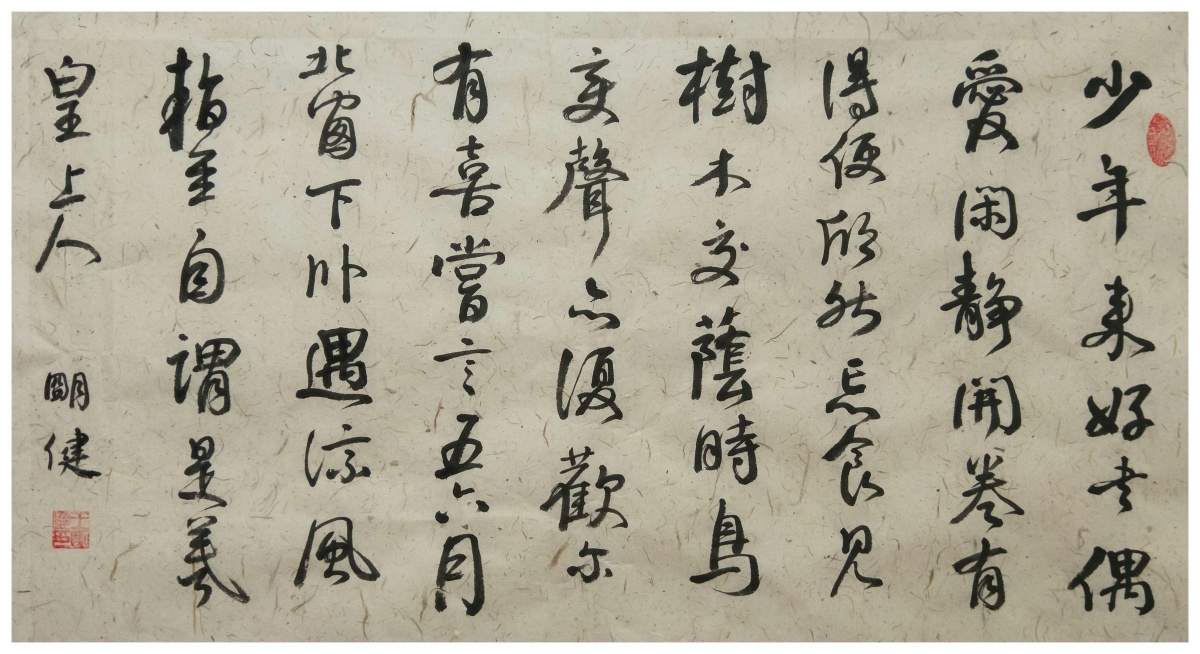 少年来好书偶
愛閑静開卷有
得便欣然忘食見
樹木交蔭時鳥
变聲亦復歡尔
有喜嘗言五六月
北窗下卧遇涼風
暫至自謂是羲
皇上人
朙健